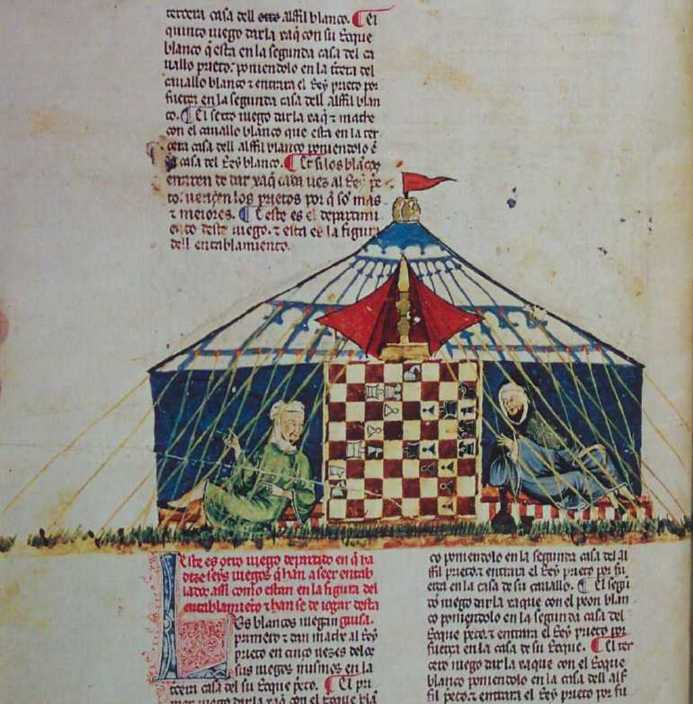 tercera casa dell alffil blanco. ¶ El
quinto iuego darla xaq̃ con su Roque
blanco q̃ esta en la segunda casa del ca
uallo prieto: poniendolo en la del
cauallo blanco ⁊ entrara el Rey prieto por
fuerça en la segunda casa dell Alffil blan
co. ¶ El sexto iuego darla xaq̃ ⁊ mathe
con el cauallo blanco que esta en la ter
cera casa dell alffil blanco poniendolo ẽ
casa del Rey blanco. ¶ Et si los blancos
de dar xaq̃ cada uez al Rey p̃e
to. los prietos por q̃ so mas
⁊ meiores. ¶ E este es el departimi
ento deste iuego. ⁊ esta es la figura
dell entablamiento.
Este es otro iuego departido en q̃ ha
iuegos q̃ han a seer entab
lados assi como estan en la figura del
entablamiento ⁊ han se de iogar desta
Os blancos iuegan guisa.
primero ⁊ dan mathe al Rey
prieto en cinco uezes delos
sus iuegos mismos en la
casa del su Roque p̃eto. ¶ El pri
iuego darla xaq̃ con el Roque blã
co poniendolo en la segunda casa del al
ffil prieto. ⁊ entrara el Rey prieto por fu
erça en la casa de su cauallo. ¶ El segũ
do iuego darla xaque con el peon blan
co poniendolo en la segunda casa del
Roque p̃eto. ⁊ entrara el Rey prieto por
fuerça en la casa de su Roque. ¶ El ter
cero iuego darla xaque con el Roque
blanco poniendolo en la casa del alf
fil p̃eto. ⁊ entrara el Rey prieto por fu